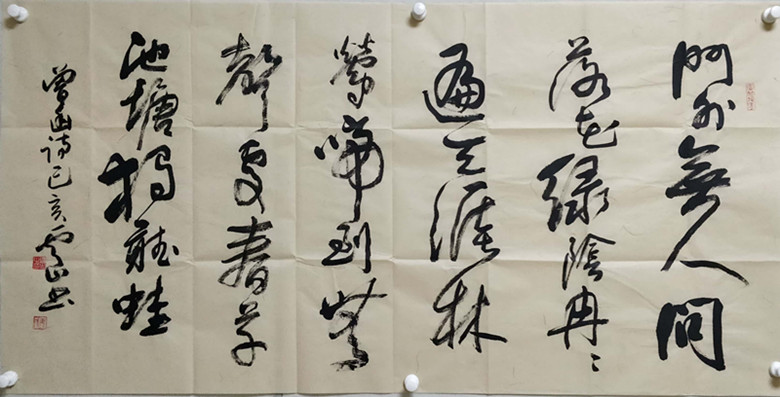 門外無人問
落花綠陰冉〻
遍天涯林
鶯啼到無
聲處青草
池塘獨聽蛙
曹豳詩己亥雲山書